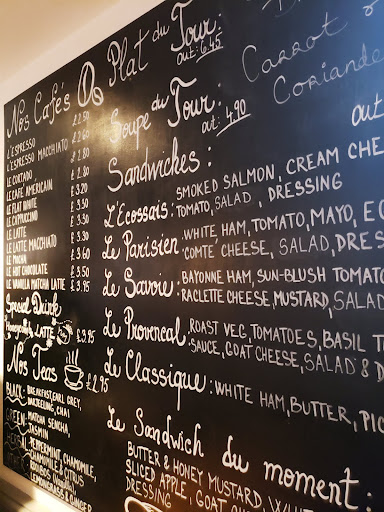 Nos Cafés
L'ESPRESSO £2.50
L'ESPRESSO MACCHIATO £2.60
LE CORTADO £2.80
LE CAFÉ AMERICAIN £3.20
LE FLAT WHITE £3.30
LE CAPPUCCINO £3.30
LE LATTE £3.30
LE LATTE MACCHIATO £3.40
LE MOCHA £3.60
LE HOT CHOCOLATE £3.50
LE VANILLA MATCHA LATTE £3.95
Special Drink
LATTE £3.95
Nos Teas £2.95
BLACK: BREAKFAST, EARL GREY,
DARJEELING, CHAI
GREEN: MATCHA SENCHA,
JASMIN
PEPPERMINT, CHAMOMILE,
CHAMOMILE & CITRUS
ROOIBOS
LEMONGRASS & GINGER
Plat du Jour:
out: 6.45
Soupe du Jour:
out: 4.90
Carrot &
Coriande
out
Sandwiches:
L'Écossais: SMOKED SALMON, CREAM CHE
TOMATO, SALAD, DRESSING
Le Parisien: WHITE HAM, TOMATO, MAYO, E
COMTÉ CHEESE, SALAD, DRES
Le Savoie: BAYONNE HAM, SUN-BLUSH TOMATO
RACLETTE CHEESE, MUSTARD, SALAD
Le Provencal: ROAST VEG, TOMATOES, BASIL T
SAUCE, GOAT CHEESE, SALAD & D
Le Classique: WHITE HAM, BUTTER, PIC
Le Sandwich du moment:
BUTTER & HONEY MUSTARD, WHITE
SLICED APPLE, GOAT
DRESSING